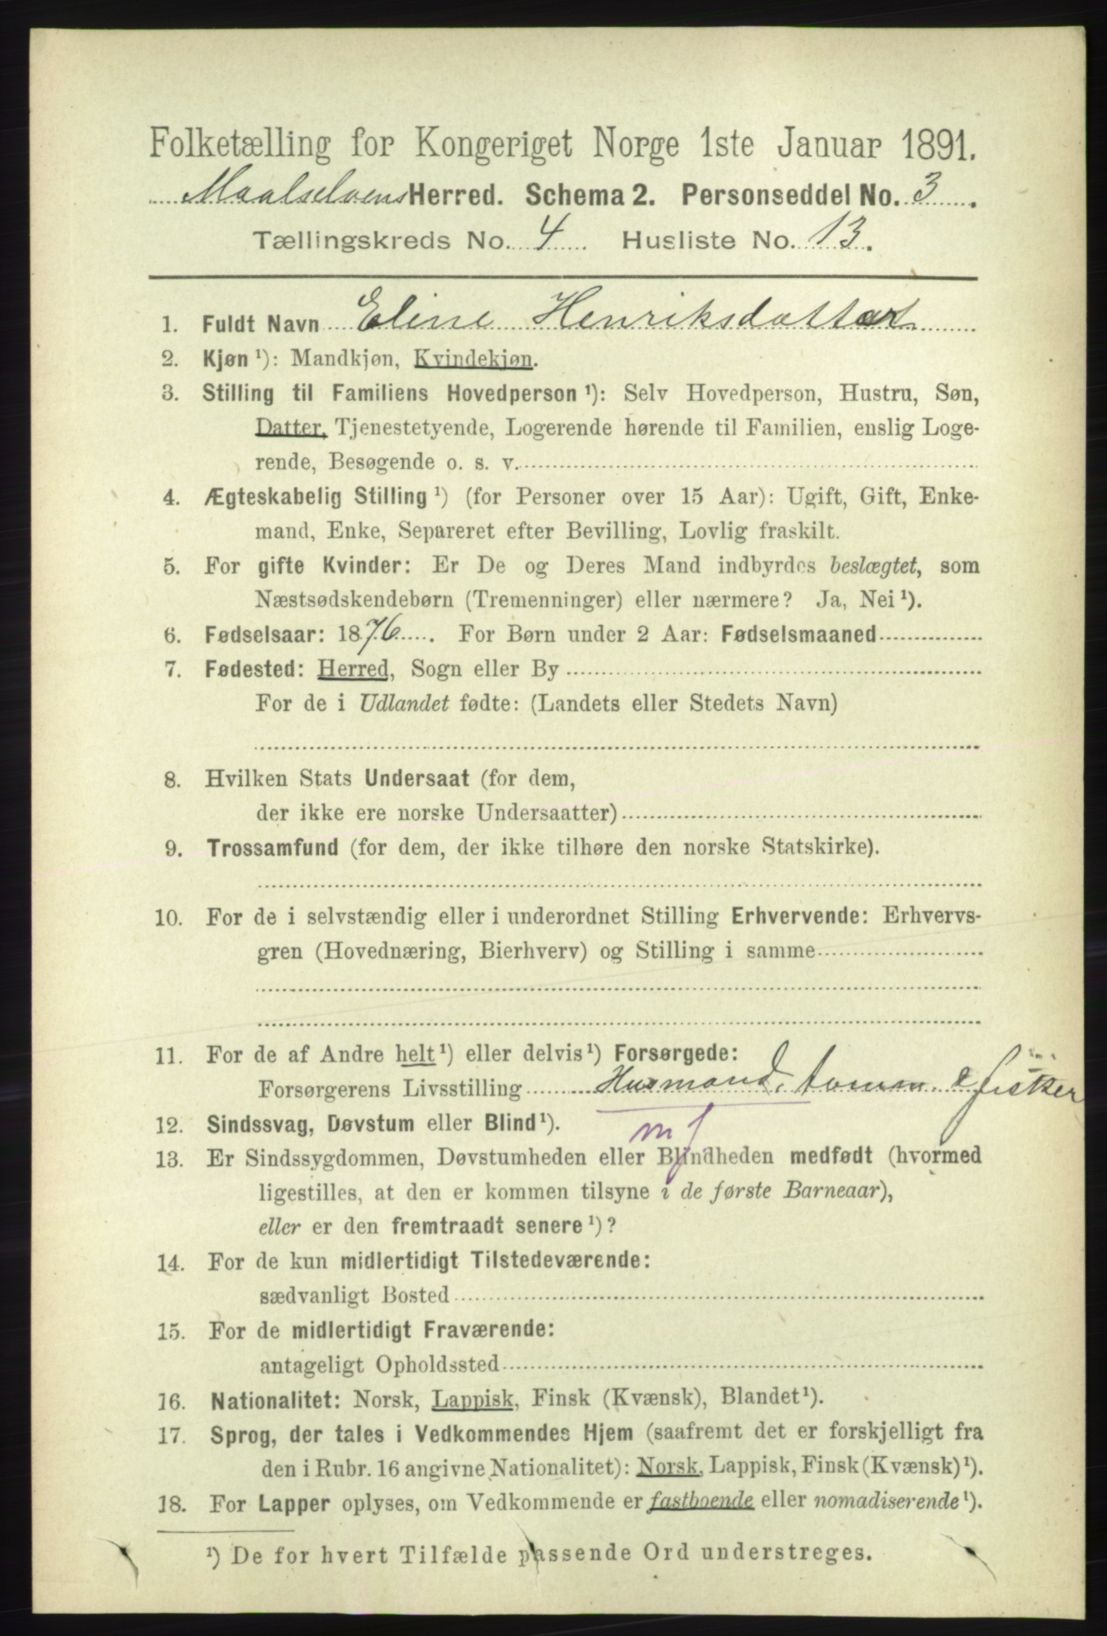 Folketælling for Kongeriget Norge 1ste Januar 1891.
Maalselvens Herred. Schema 2. Personseddel No. 3.
Tællingskreds No. 4 Husliste No. 13.
1. Fuldt Navn Eline Henriksdatter
2. Kjøn ¹): Mandkjøn, Kvindekjøn.
3. Stilling til Familiens Hovedperson ¹): Selv Hovedperson, Hustru, Søn,
Datter, Tjenestetyende, Logerende hørende til Familien, enslig Loge-
rende, Besøgende o. s. v.
4. Ægteskabelig Stilling ¹) (for Personer over 15 Aar): Ugift, Gift, Enke-
mand, Enke, Separeret efter Bevilling, Lovlig fraskilt.
5. For gifte Kvinder: Er De og Deres Mand indbyrdes beslægtet, som
Næstsødskendebørn (Tremenninger) eller nærmere? Ja, Nei ¹).
6. Fødselsaar: 1876. For Børn under 2 Aar: Fødselsmaaned
7. Fødested: Herred, Sogn eller By
For de i Udlandet fødte: (Landets eller Stedets Navn)
8. Hvilken Stats Undersaat (for dem,
der ikke ere norske Undersaatter)
9. Trossamfund (for dem, der ikke tilhøre den norske Statskirke).
10. For de i selvstændig eller i underordnet Stilling Erhvervende: Erhvervs-
gren (Hovednæring, Bierhverv) og Stilling i samme
11. For de af Andre helt ¹) eller delvis ¹) Forsørgede:
Forsørgerens Livsstilling Husmand, tømm. & fisker
m f
12. Sindssvag, Døvstum eller Blind ¹).
13. Er Sindssygdommen, Døvstumheden eller Blindheden medfødt (hvormed
ligestilles, at den er kommen tilsyne i de første Barneaar),
eller er den fremtraadt senere ¹)?
14. For de kun midlertidigt Tilstedeværende:
sædvanligt Bosted
15. For de midlertidigt Fraværende:
antageligt Opholdssted
16. Nationalitet: Norsk, Lappisk, Finsk (Kvænsk), Blandet ¹).
17. Sprog, der tales i Vedkommendes Hjem (saafremt det er forskjelligt fra
den i Rubr. 16 angivne Nationalitet): Norsk, Lappisk, Finsk (Kvænsk) ¹).
18. For Lapper oplyses, om Vedkommende er fastboende eller nomadiserende ¹).
¹) De for hvert Tilfælde passende Ord understreges.